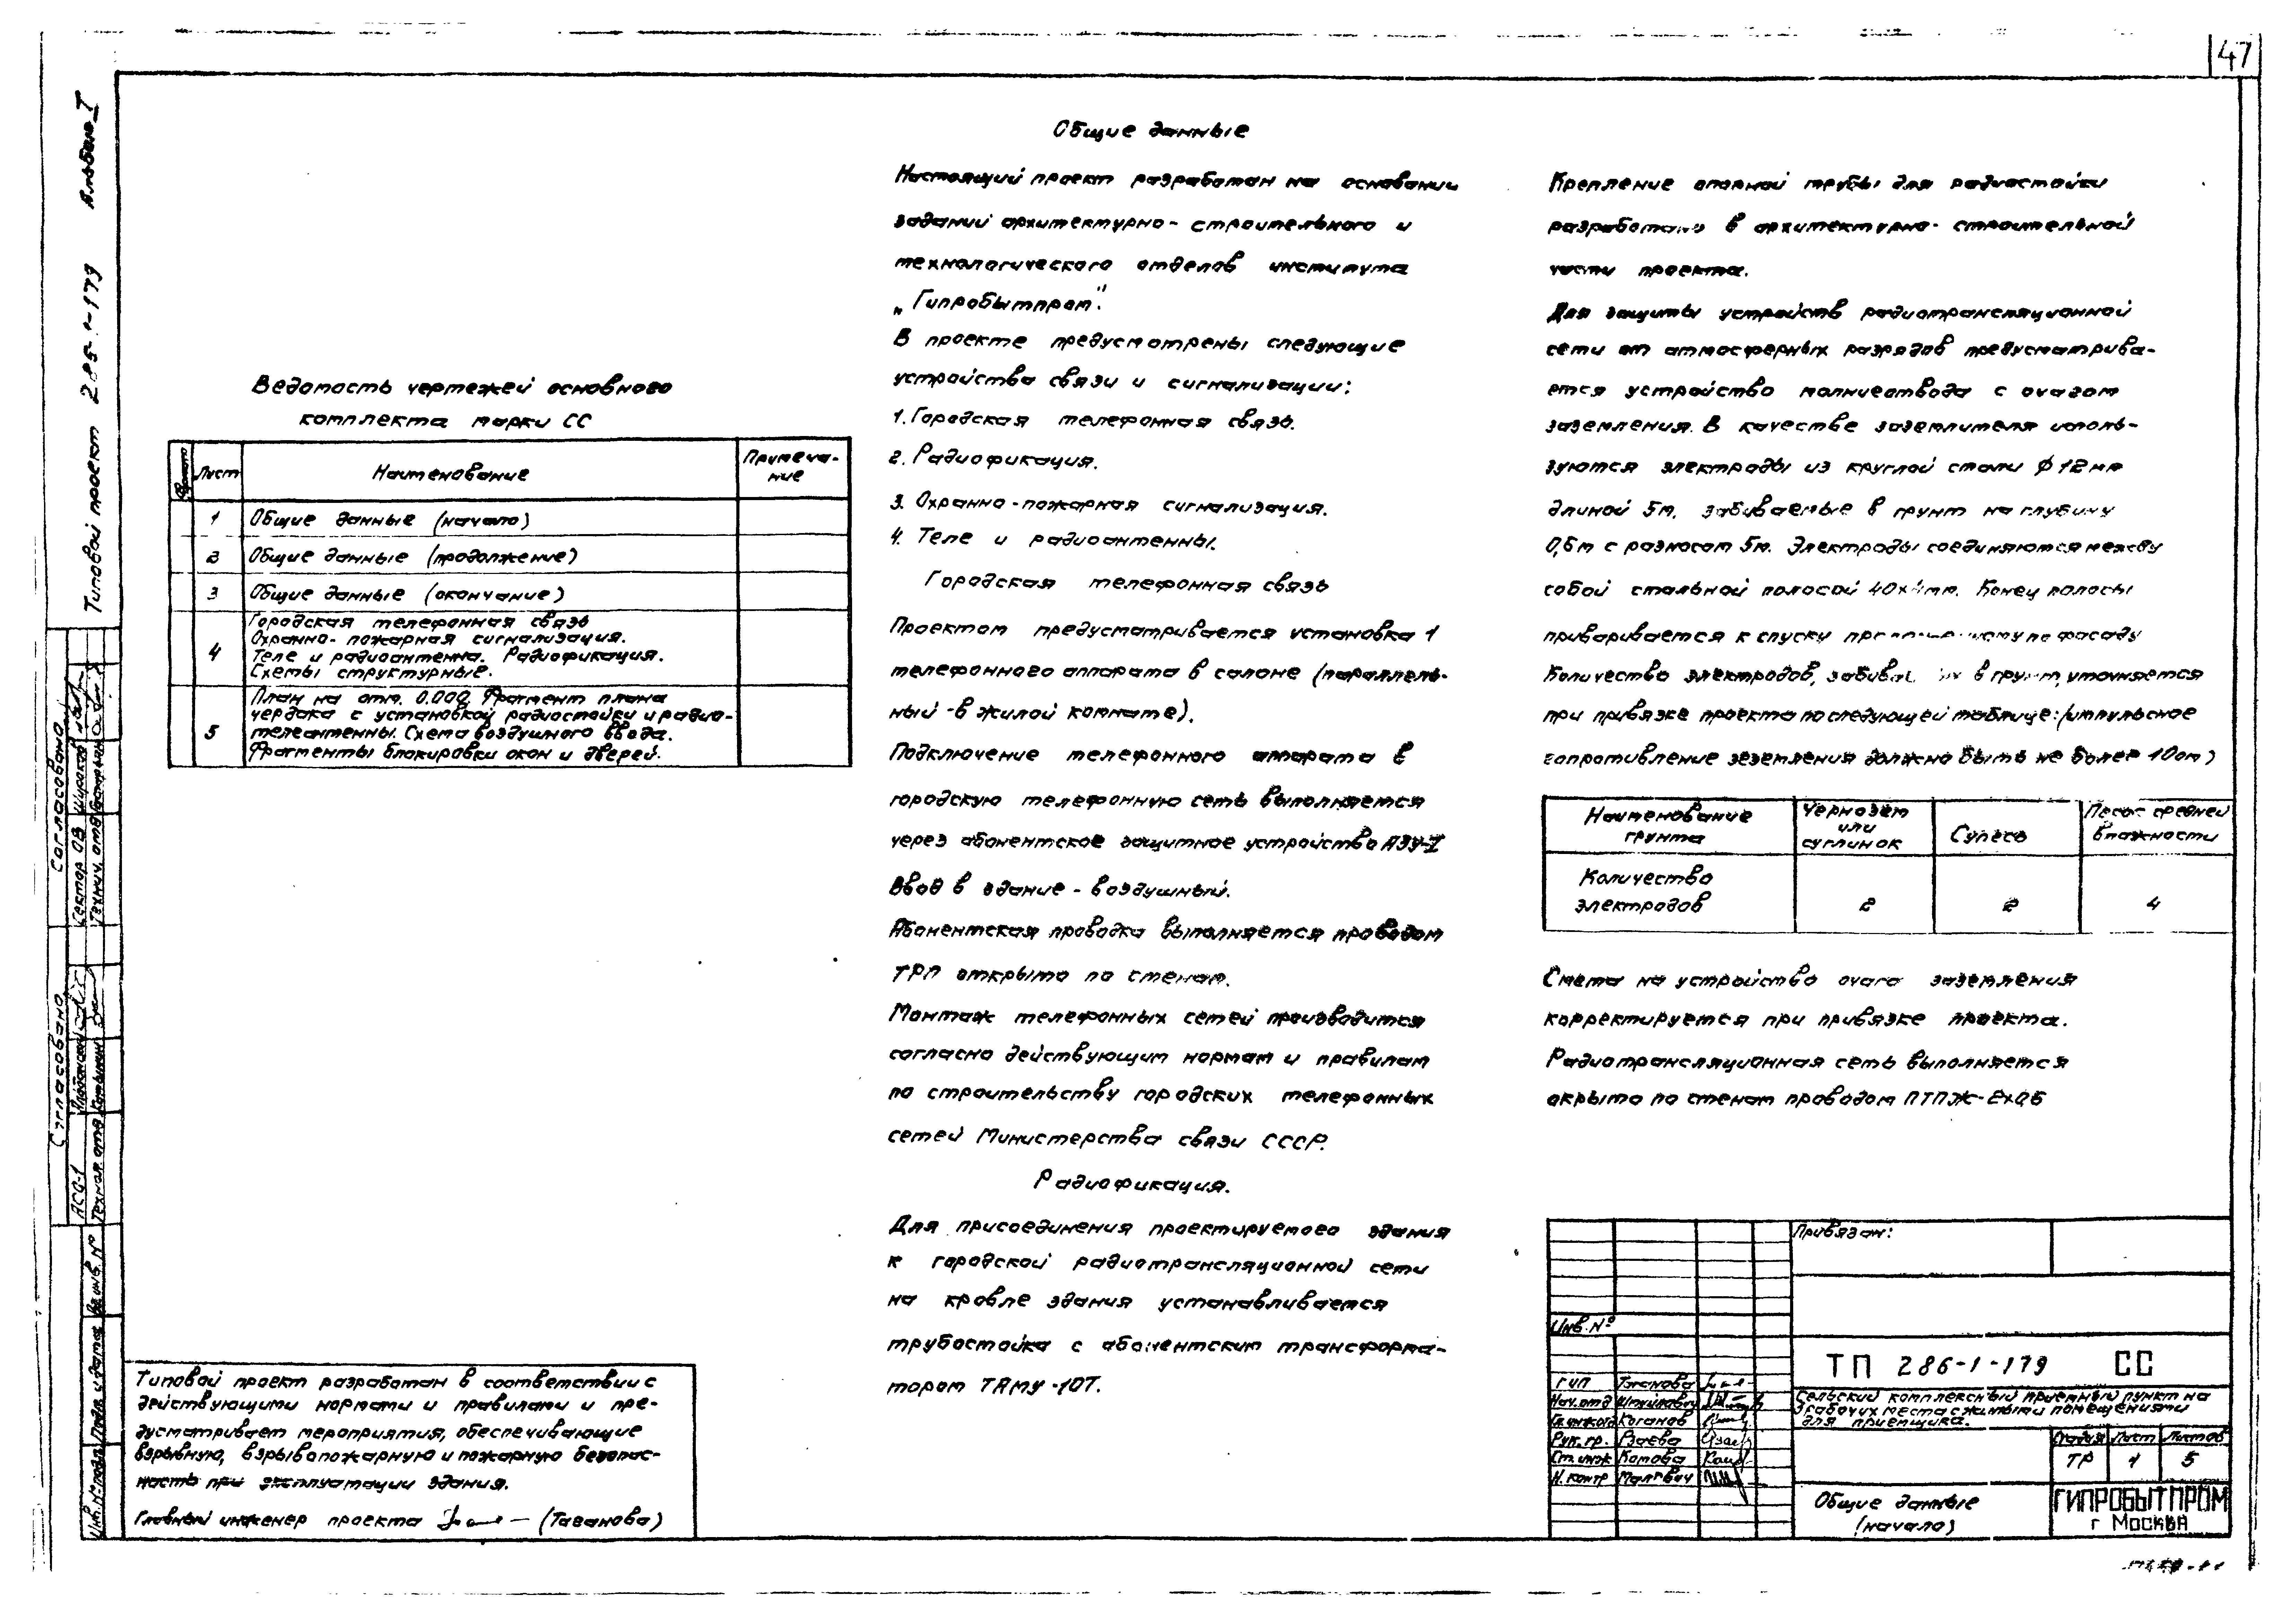 47
Альбом I
Типовой проект 286-1-179
Ведомость чертежей основного
комплекта марки СС
Лист
Наименование
Примеча-
ние
1 Общие данные (начало)
2 Общие данные (продолжение)
3 Общие данные (окончание)
4 Городская телефонная связь
Охранно-пожарная сигнализация.
Теле и радиоантенна. Радиофикация.
Схемы структурные.
5 План на отм. 0.000. Фрагмент плана
чердака с установкой радиостойки и радио-
телеантенны. Схема воздушного ввода.
Фрагменты блокировки окон и дверей.
Типовой проект разработан в соответствии с
действующими нормами и правилами и пре-
дусматривает мероприятия, обеспечивающие
взрывную, взрывопожарную и пожарную безопас-
ность при эксплуатации здания.
Главный инженер проекта (Таганова)
Общие данные
Настоящий проект разработан на основании
заданий архитектурно-строительного и
технологического отделов института
„Гипробытпром".
В проекте предусмотрены следующие
устройства связи и сигнализации:
1. Городская телефонная связь.
2. Радиофикация.
3. Охранно-пожарная сигнализация.
4. Теле и радиоантенны.
Городская телефонная связь
Проектом предусматривается установка 1
телефонного аппарата в салоне (параллель-
ный -в жилой комнате).
Подключение телефонного аппарата в
городскую телефонную сеть выполняется
через абонентское защитное устройство АЗУ-I
Ввод в здание - воздушный.
Абонентская проводка выполняется проводом
ТРП открыто по стенам.
Монтаж телефонных сетей производится
согласно действующим нормам и правилам
по строительству городских телефонных
сетей Министерства связи СССР.
Радиофикация.
Для присоединения проектируемого здания
к городской радиотрансляционной сети
на кровле здания устанавливается
трубостойка с абонентским трансформа-
тором ТАМУ-10Т.
Крепление опорной трубы для радиостойки
разработано в архитектурно-строительной
части проекта.
Для защиты устройств радиотрансляционной
сети от атмосферных разрядов предусматрива-
ется устройство молниеотвода с очагом
заземления. В качестве заземлителя исполь-
зуются электроды из круглой стали ф 12мм
длиной 5м, забиваемые в грунт на глубину
0,6м с разносом 5м. Электроды соединяются между
собой стальной полосой 40х4мм. Конец полосы
приваривается к спуску по фасаду
Количество электродов, в грунт, уточняется
при привязке проекта по следующей таблице: (импульсное
сопротивление зеземления должно быть не более 10ом)
Наименование
грунта
Чернозем
или
суглинок
Супесь
Песок средней
влажности
Количество
электродов
2
2
4
Смета на устройство очага заземления
корректируется при привязке проекта.
Радиотрансляционная сеть выполняется
окрыто по стенам проводом ПТПЖ-2х0,6
Привязан:
Инв. №
ТП 286-1-179 СС
Сельский комплексный приемный пункт на
3 рабочих места с жилыми помещениями
для приемщика.
ГИП Таганова
Нач. отд
Каганов
Рук. гр.
Ст. инж Котова
Н. контр
Стадия Лист Листов
ТР 1 5
Общие данные
(начало)
ГИПРОБЫТПРОМ
г Москва
Согласовано
Сектор ОВ
Согласовано
АСО-1
Технол. отд
Взам. инв. №
Подп. и дата
Инв. № подл.